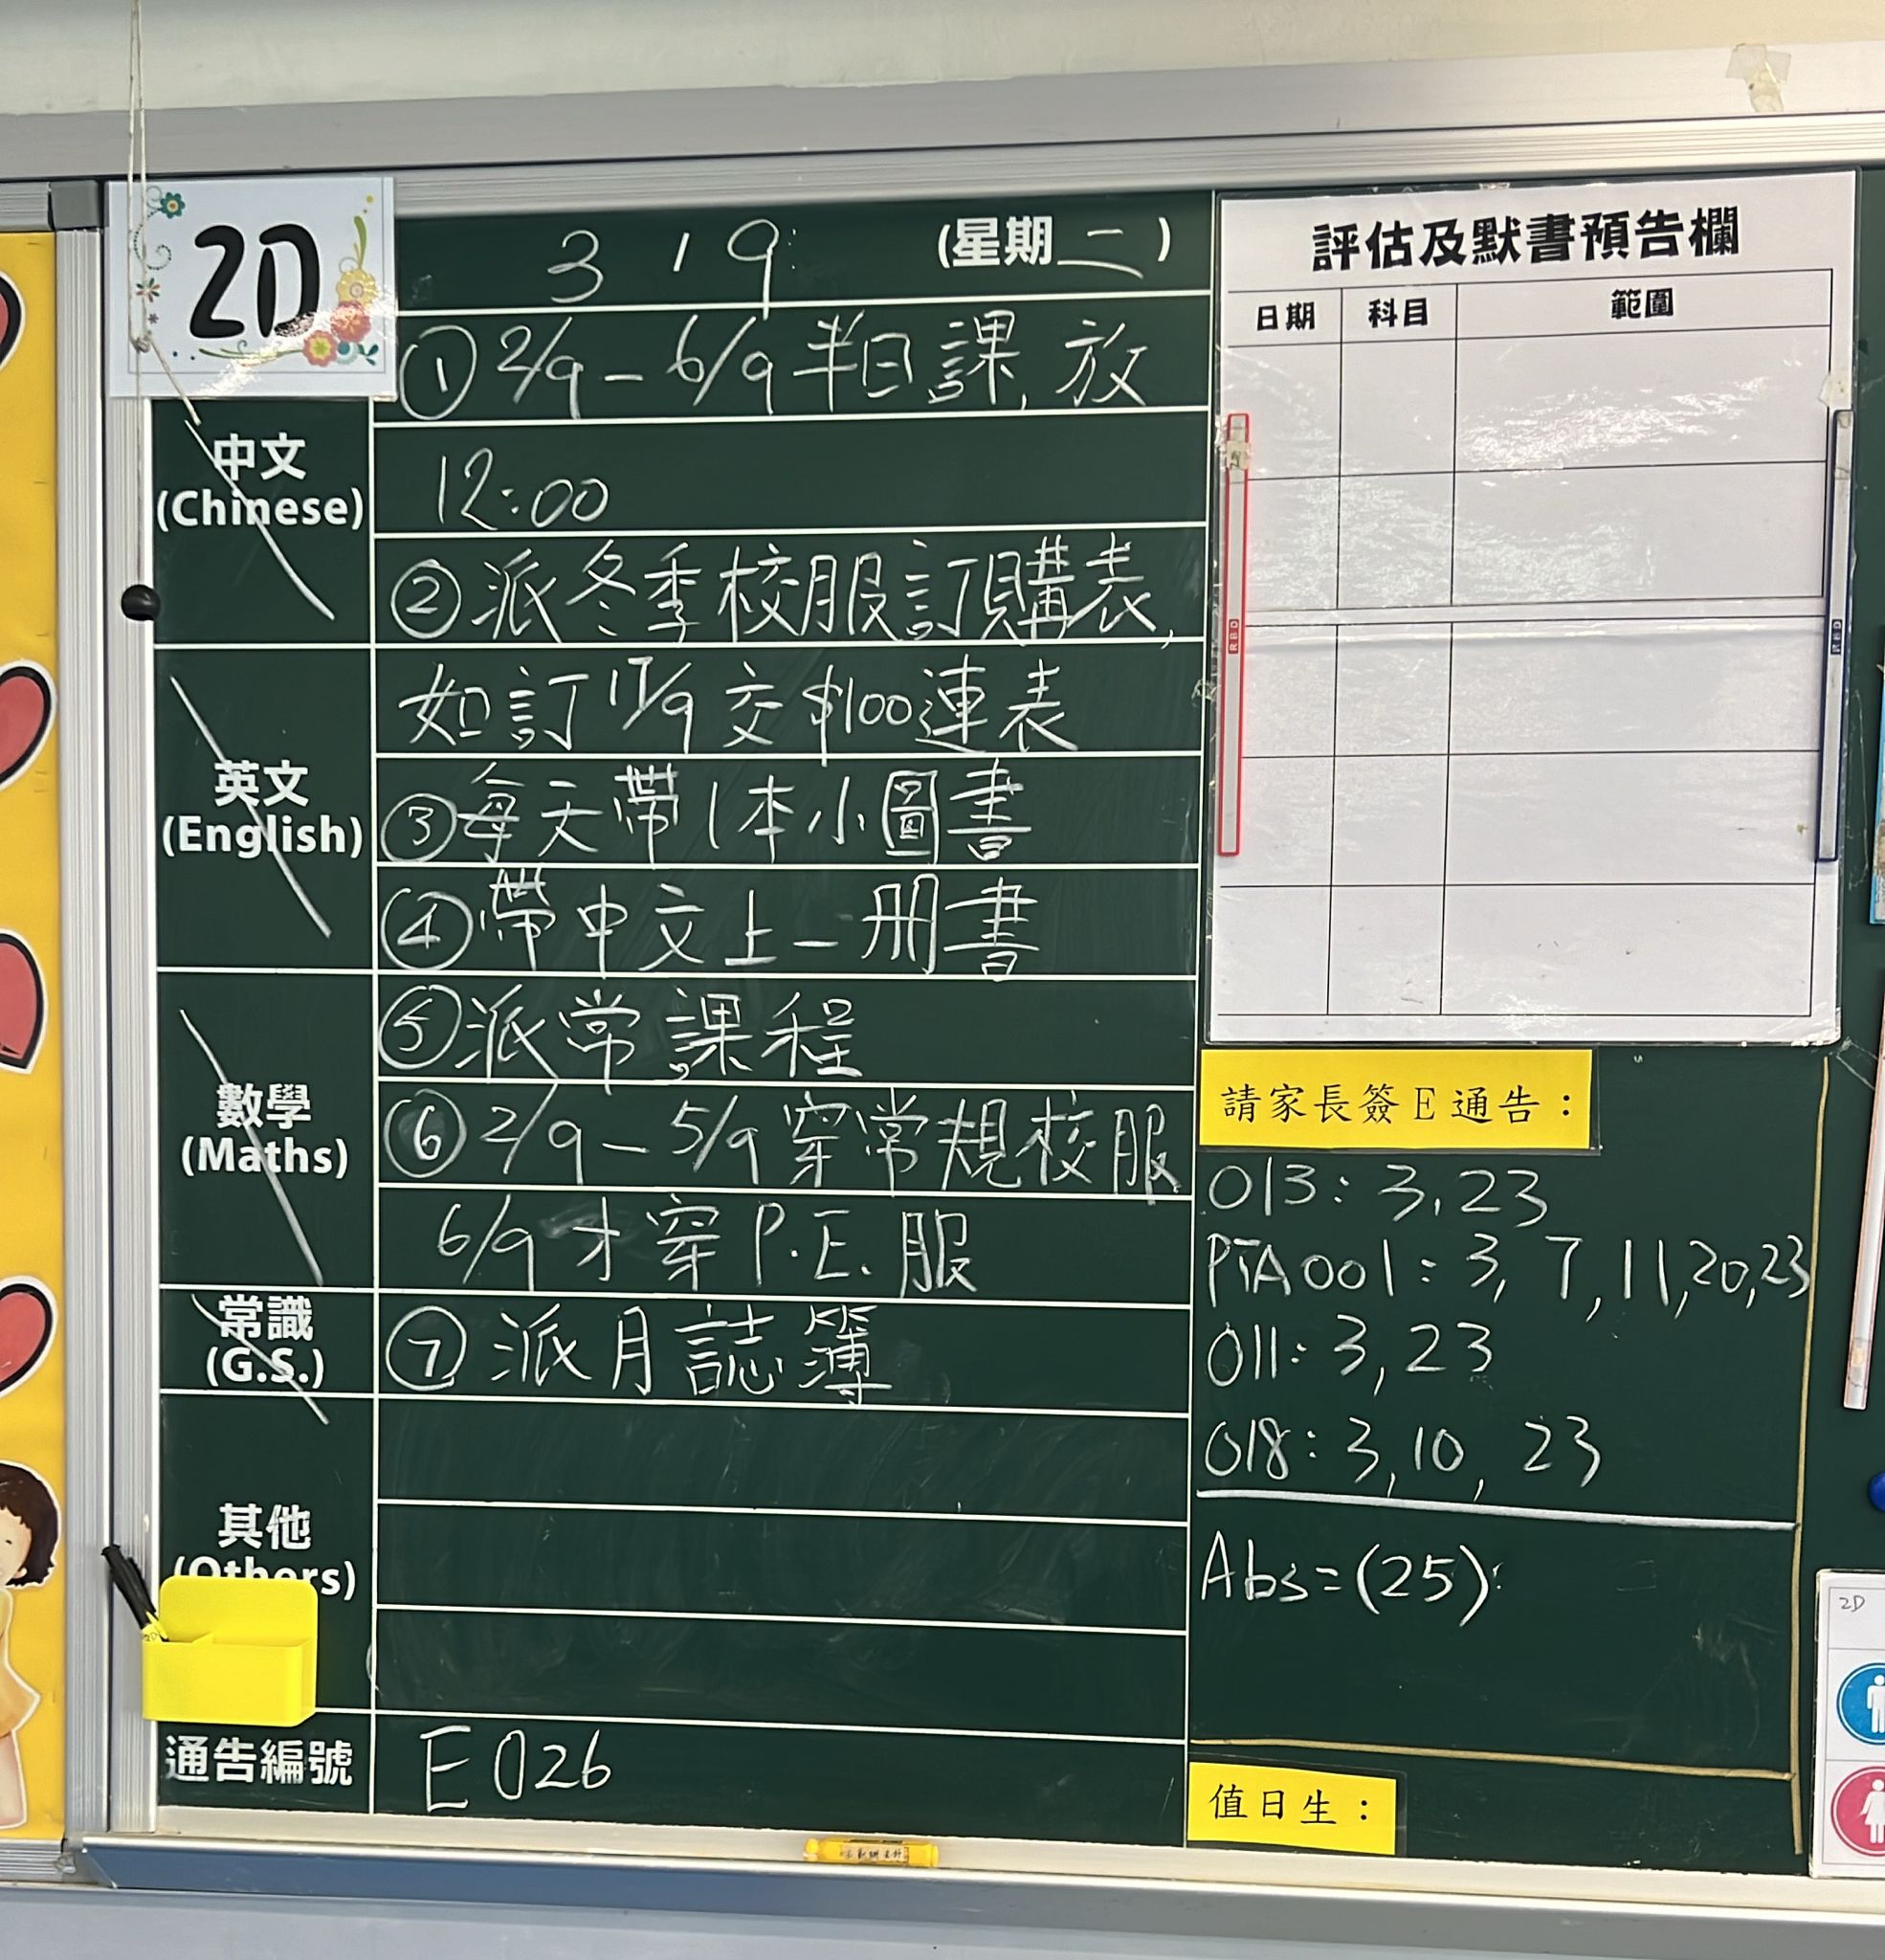 2D
3 1 9 (星期二)
① 2/9 - 6/9 半日課, 放
中文
(Chinese)
12:00
② 派冬季校服訂購表,
如訂 17/9 交 $100 連表
英文
(English)
③ 每天帶 1 本小圖書
④ 帶中文上一冊書
⑤ 派常課程
數學
(Maths)
⑥ 2/9 - 5/9 穿常規校服
6/9 才穿 P.E. 服
常識
(G.S.)
⑦ 派月誌簿
其他
(Others)
通告編號
E 026
評估及默書預告欄
日期 科目 範圍
請家長簽 E 通告：
013: 3, 23
PTA 001: 3, 7, 11, 20, 23
011: 3, 23
018: 3, 10, 23
Abs = (25)
值日生：
2D